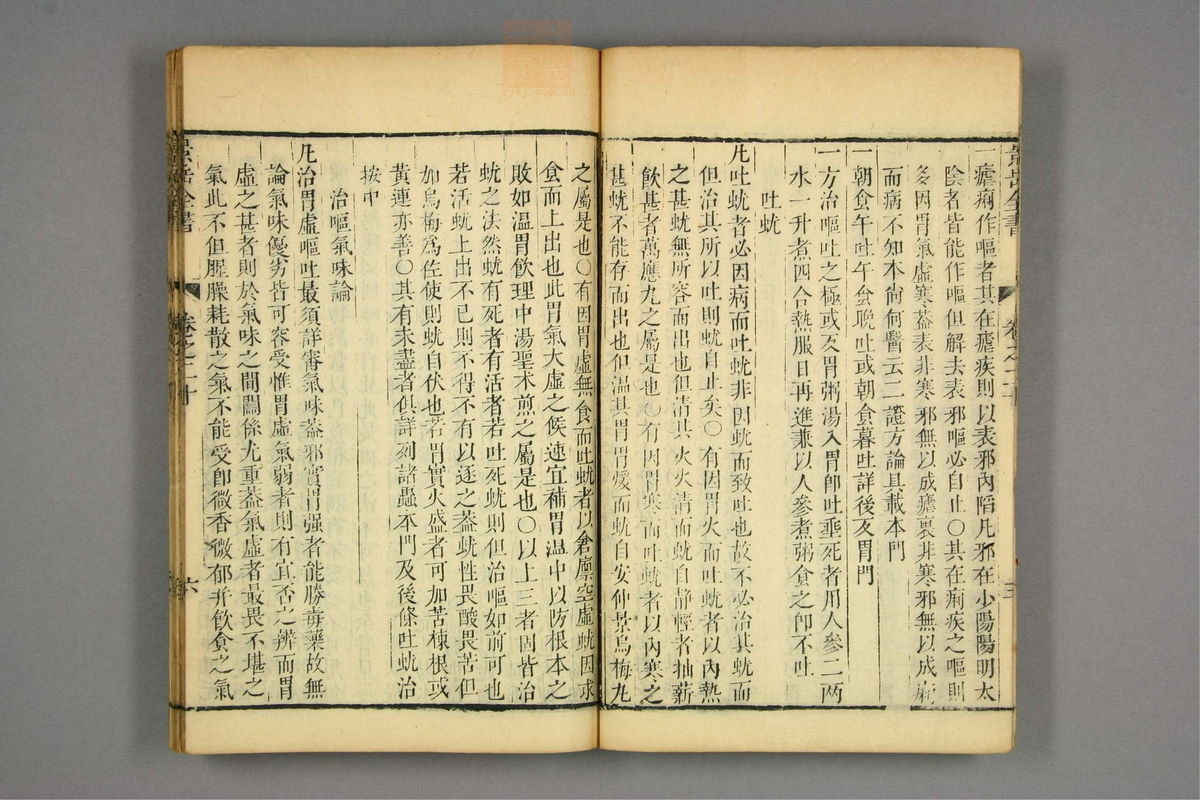 一瘧痢作嘔者其在瘧疾則以表邪內陷凡邪在少陽陽明太
陰者皆能作嘔但解去表邪嘔必自止〇其在痢疾之嘔則
多因胃氣虛寒蓋表非寒邪無以成瘧裏非寒邪無以成痢
而病不知本尚何醫云二證方論具載本門
一朝食午吐午食晚吐或朝食暮吐詳後反胃門
一方治嘔吐之極或反胃粥湯入胃卽吐垂死者用人參二兩
水一升煮四合熱服日再進兼以人參煮粥食之卽不吐
吐蚘
凡吐蚘者必因病而吐蚘非因蚘而致吐也故不必治其蚘而
但治其所以吐則蚘自止矣〇有因胃火而吐蚘者以內熱
之甚蚘無所容而出也但清其火火清而蚘自静輕者抽薪
飲甚者萬應丸之屬是也〇有因胃寒而吐蚘者以內寒之
甚蚘不能存而出也但温其胃胃煖而蚘自安仲景烏梅丸
之屬是也〇有因胃虛無食而吐蚘者以倉廪空虛蚘因求
食而上出也此胃氣大虛之候速宜補胃温中以防根本之
敗如温胃飲理中湯聖术煎之屬是也〇以上三者固皆治
蚘之法然蚘有死者有活者若吐死蚘則但治嘔如前可也
若活蚘上出不已則不得不有以逐之蓋蚘性畏酸畏苦但
加烏梅爲佐使則蚘自伏也若胃實火盛者可加苦楝根或
黃連亦善〇其有未盡者俱詳列諸蟲本門及後條吐蚘治
按中
治嘔氣味論
凡治胃虛嘔吐最須詳審氣味蓋邪實胃强者能勝毒藥故無
論氣味優劣皆可容受惟胃虛氣弱者則有宜否之辨而胃
虛之甚者則於氣味之間關係尤重蓋氣虛者最畏不堪之
氣此不但腥臊耗散之氣不能受卽微香微郁幷飲食之氣
景岳全書
卷之二十
六